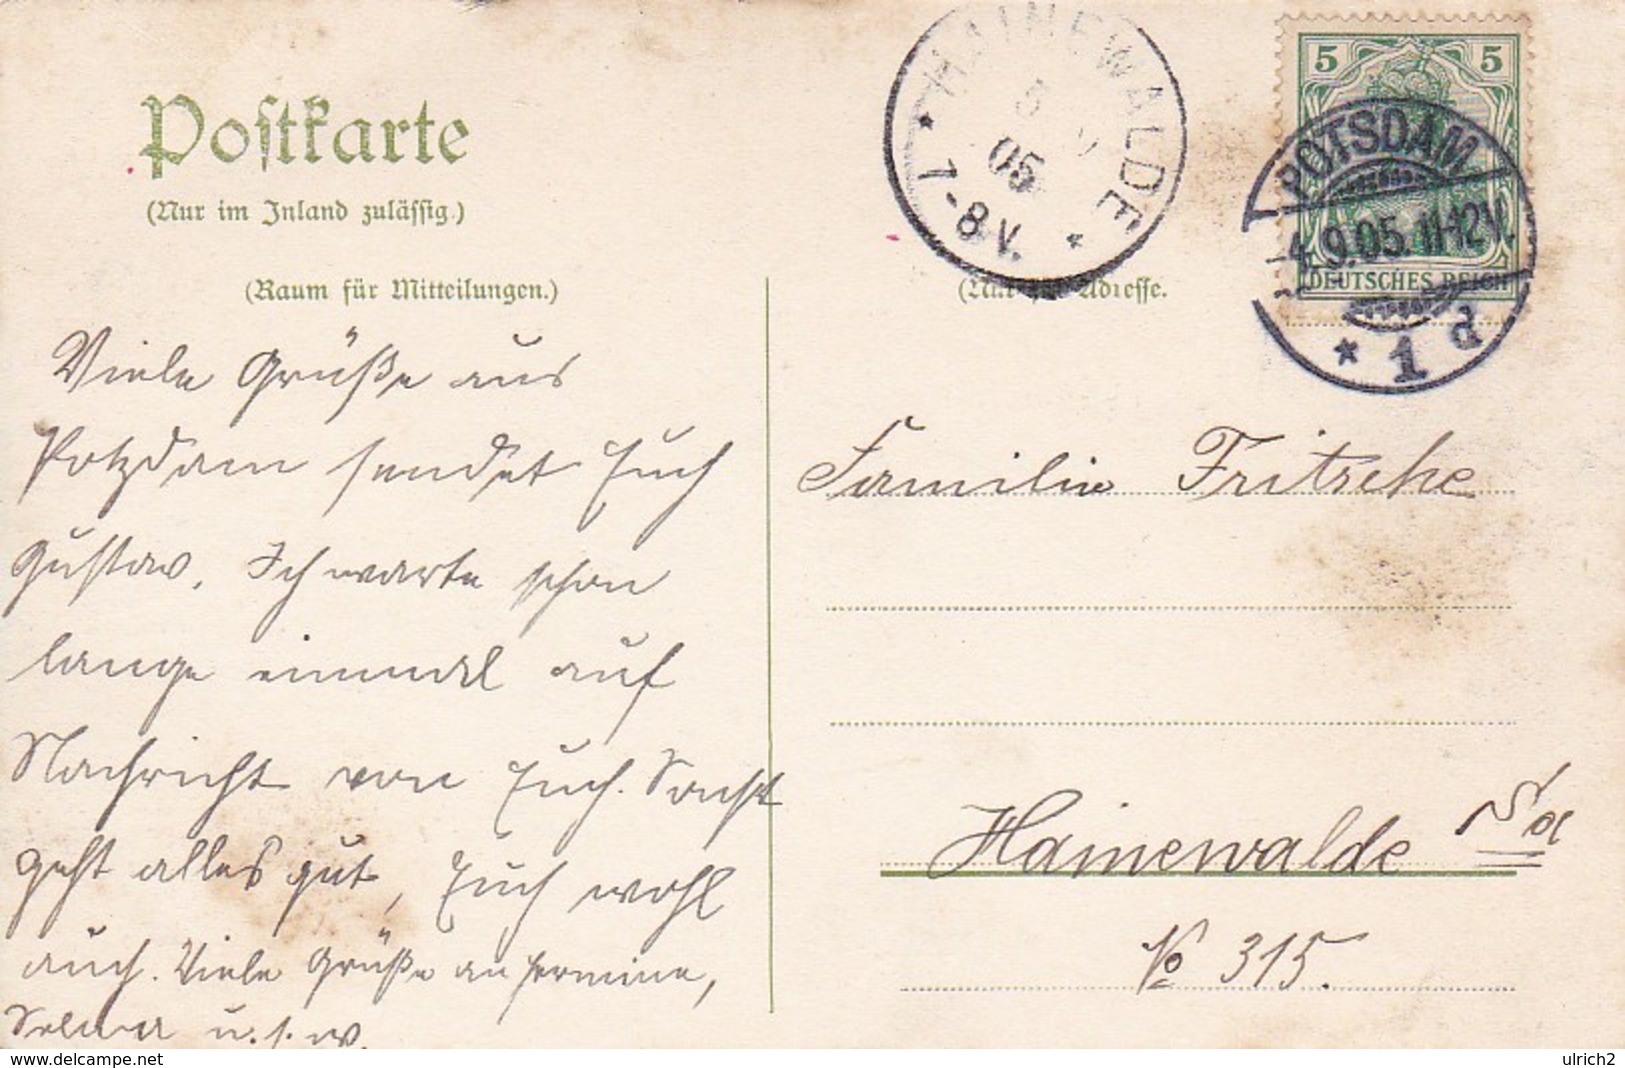 Postkarte
(Nur im Inland zulässig.)
(Raum für Mitteilungen.)
Viele Grüße aus
Potzdam sendet Euch
Gustav. Ich warte schon
lange einmal auf
Nachricht von Euch. Sonst
geht alles gut, Euch wohl
auch. Viele Grüße an Hermine,
Selma u.s.w.
HAINEWALDE
5
05
7-8V.
5 5
DEUTSCHES REICH
POTSDAM
4.9.05.11-12V.
* 1 d
(Nur für Adresse.)
Familie Fritzsche
Hainewalde Sa
No 315.
www.delcampe.net
ulrich2